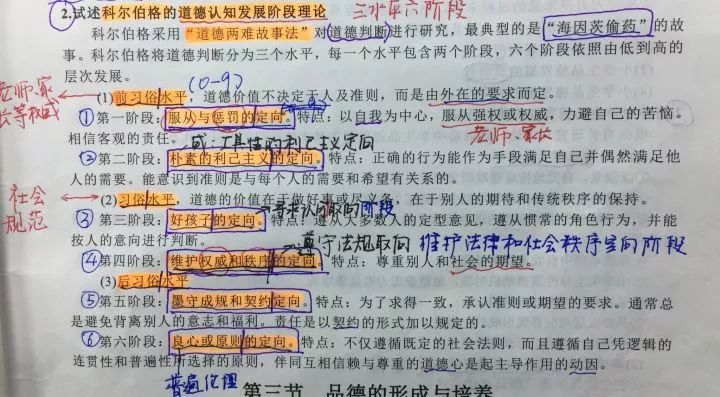 三水平六阶段
2.试述科尔伯格的道德认知发展阶段理论
科尔伯格采用“道德两难故事法”对道德判断进行研究，最典型的是“海因茨偷药”的故
事。科尔伯格将道德判断分为三个水平，每一个水平包含两个阶段，六个阶段依照由低到高的
层次发展。
(0-9)
老师、家长等权威
(1)前习俗水平，道德价值不决定于人及准则，而是由外在的要求而定。
①第一阶段：服从与惩罚的定向。特点：以自我为中心，服从强权或权威，力避自己的苦恼。
相信客观的责任。
或：工具性的利己主义定向
老师、家长
②第二阶段：朴素的利己主义的定向。特点：正确的行为能作为手段满足自己并偶然满足他
人的需要。能意识到准则是与每个人的需要和希望有关系的。
社会规范
(2)习俗水平，道德的价值在于做好事或尽义务，在于别人的期待和传统秩序的保持。
寻求认可取向阶段
③第三阶段：好孩子的定向。特点：遵从大多数人的定型意见，遵从惯常的角色行为，并能
按人的意向进行判断。
遵守法规取向 维护法律和社会秩序定向阶段
④第四阶段：维护权威和秩序的定向。特点：尊重别人和社会的期望。
(3)后习俗水平
⑤第五阶段：墨守成规和契约定向。特点：为了求得一致，承认准则或期望的要求。通常总
是避免背离别人的意志和福利。责任是以契约的形式加以规定的。
⑥第六阶段：良心或原则的定向。特点：不仅遵循既定的社会法则，而且遵循自己凭逻辑的
连贯性和普遍性所选择的原则，伴同互相信赖与尊重的道德心是起主导作用的动因。
普遍伦理
第三节 品德的形成与培养